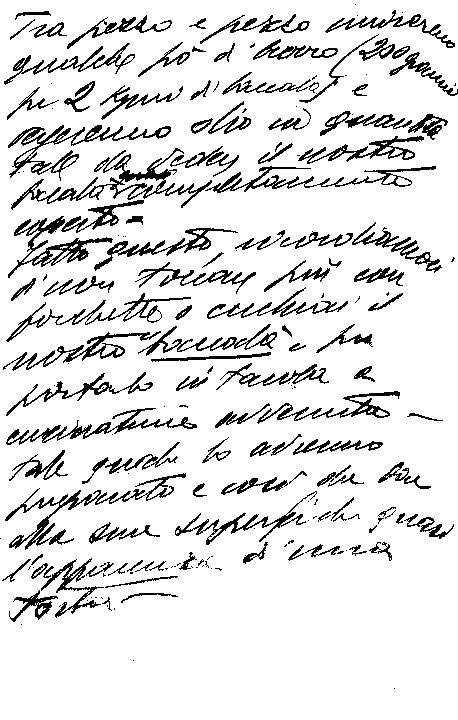 Tra pezzo e pezzo uniremo
qualche pò di burro (200 grammi
per 2 kgmi di baccalà) e
verseremo olio in quantità
tale da veder il nostro
baccalà completamente
coperto =
Fatto questo, ricordiamoci
di non toccare più con
forchette o cucchiai il
nostro "baccalà" e per
portarlo in tavola a
cucinatura avvenuta —
tale quale lo avremo
preparato e così da dare
alla sua superficie quasi
l'apparenza d'una
torta —